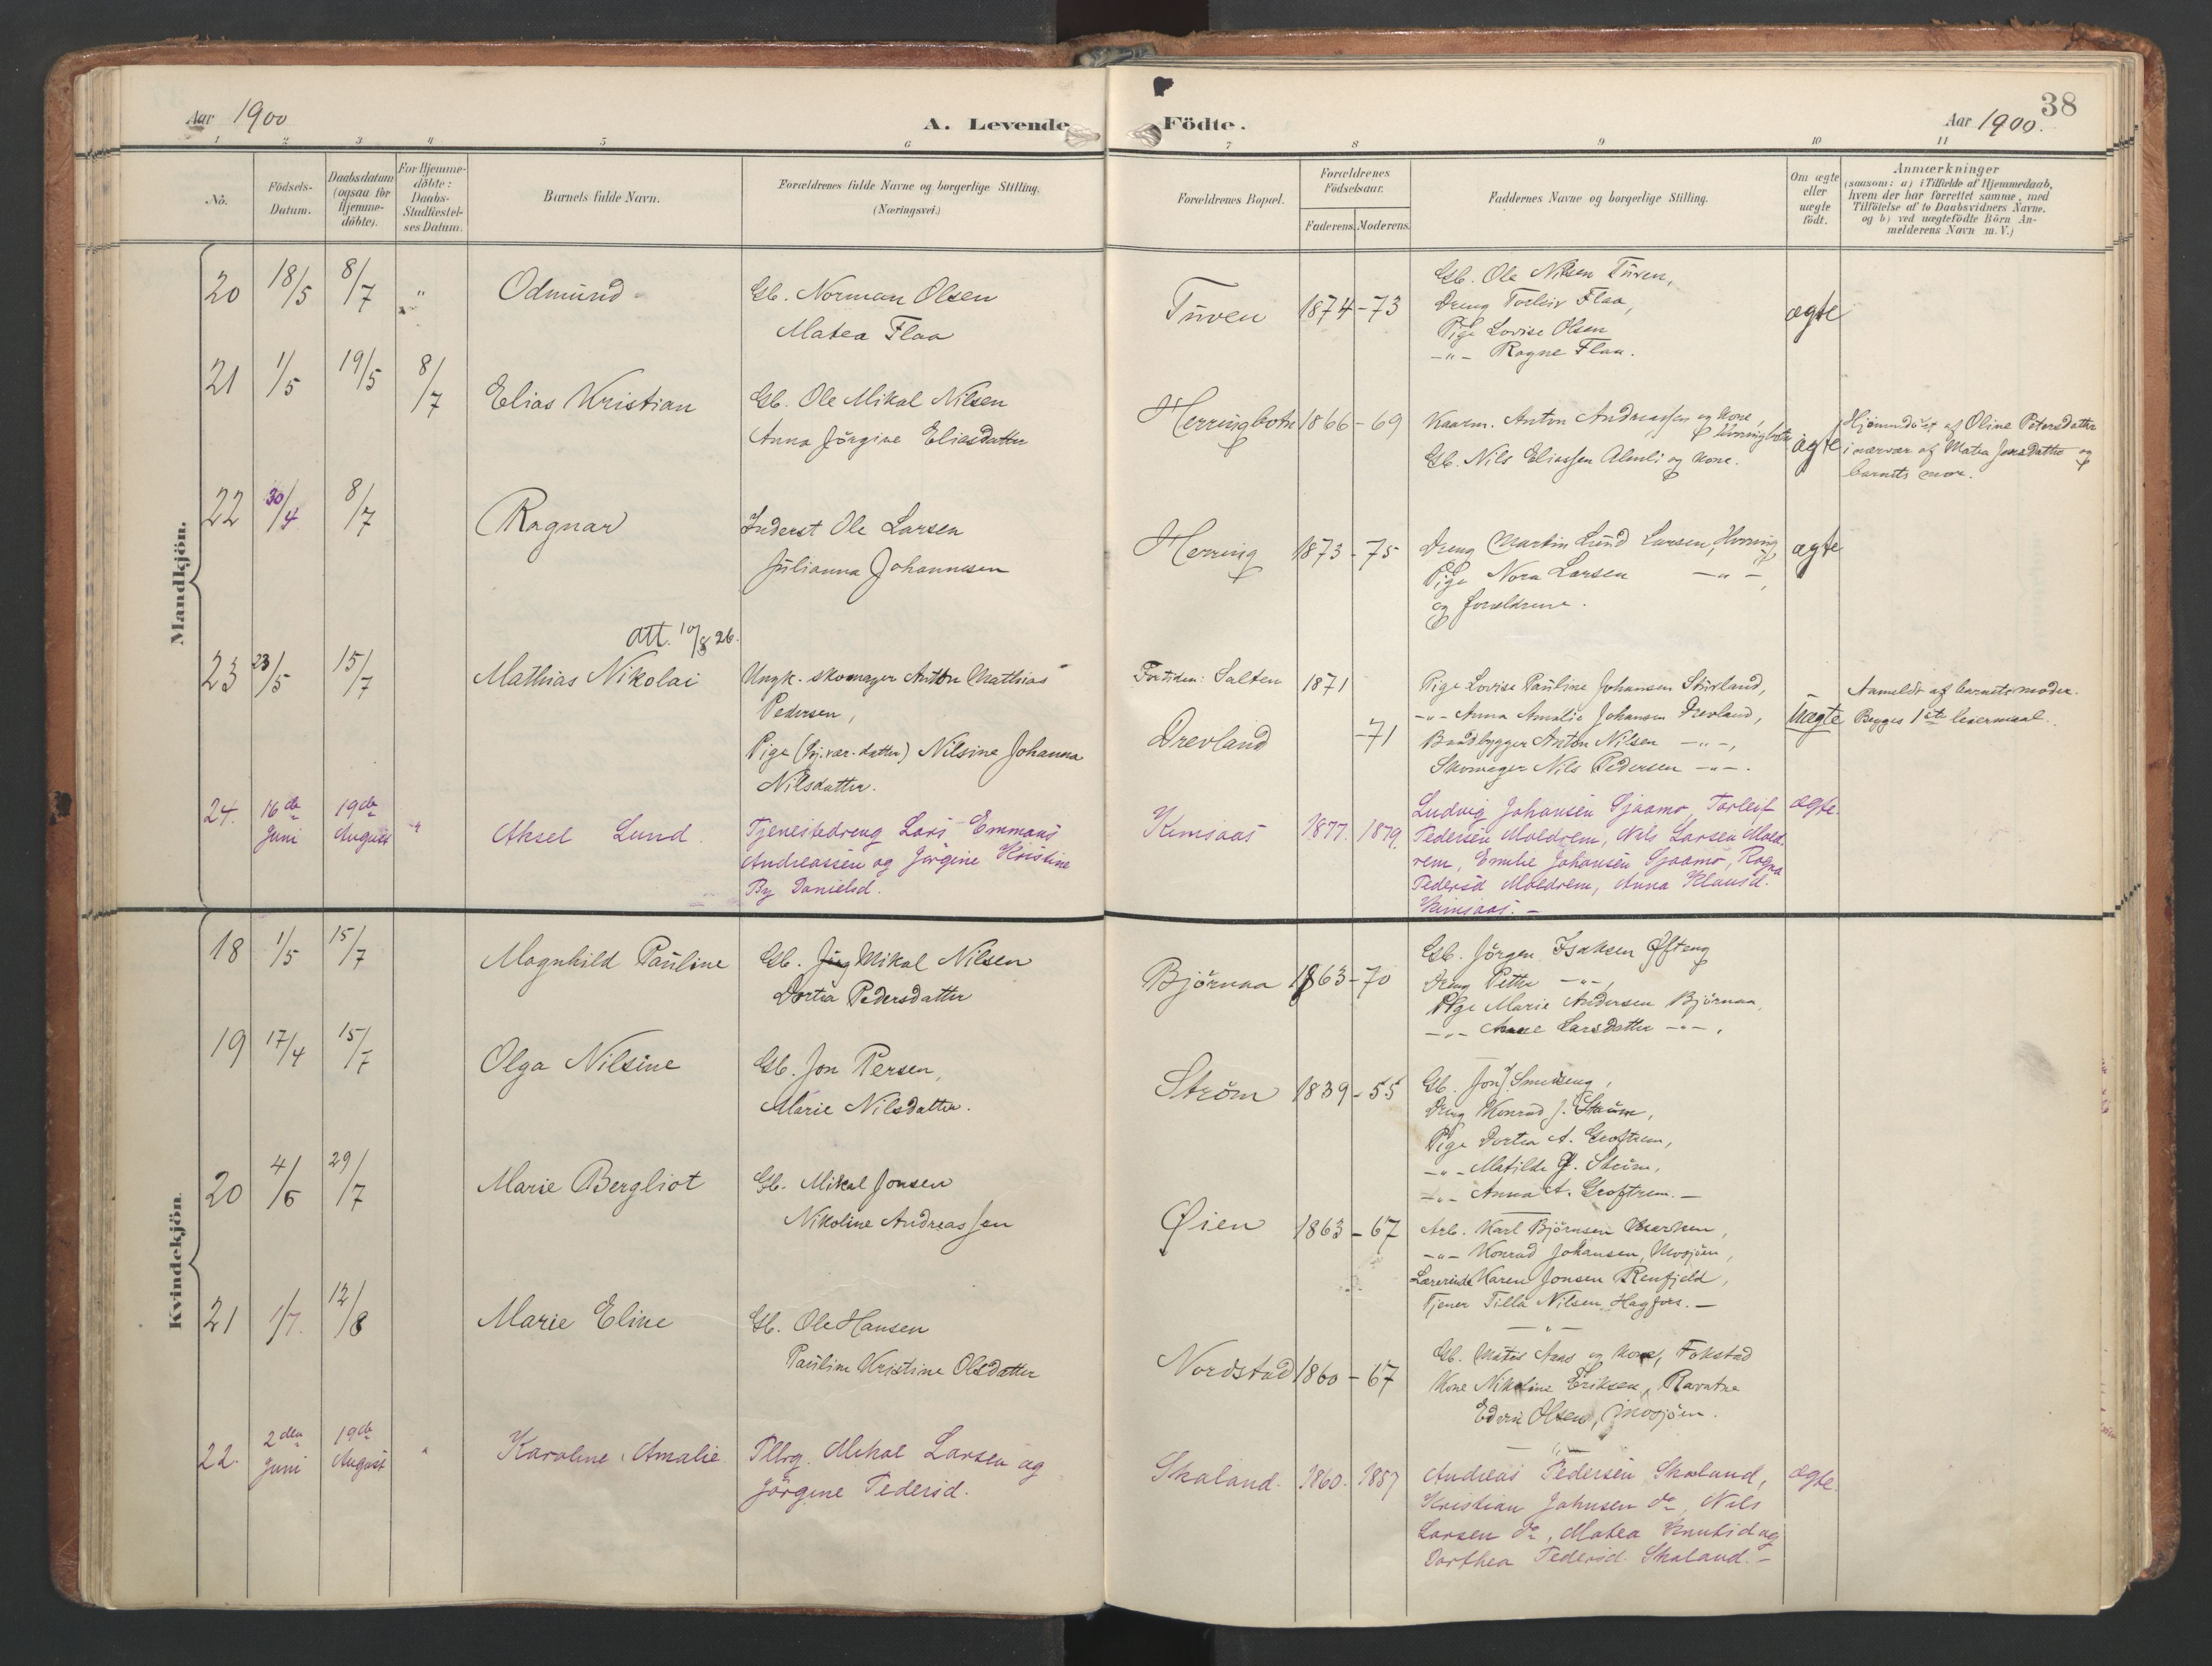 Aar 1900
A. Levende
Födte.
38
Aar 1900.
1 2 3 4 5 6 7 8 9 10 11
No.
Födsels-
Datum.
Daabsdatum
(ogsaa for
Hjemme-
döbte).
For Hjemme-
döbte:
Daabs-
Stadfæstel-
ses Datum.
Barnets fulde Navn.
Forældrenes fulde Navne og borgerlige Stilling.
(Næringsvei.)
Forældrenes Bopæl.
Forældrenes
Födselsaar.
Faderens.
Moderens.
Faddernes Navne og borgerlige Stilling.
Om ægte
eller
uægte
födt.
Anmærkninger
(saasom: a) i Tilfælde af Hjemmedaab,
hvem der har forrettet samme, med
Tilföielse af to Daabsvidners Navne.
og b) ved uægtefödte Börn An-
melderens Navn m. V.)
Mandkjön.
20 18/5 8/7 " Odmund
Gb. Norman Olsen
Matea Flaa
Tuven 1874 - 73
Gb. Ole Nilsen Tuven,
Dreng Torleiv Flaa,
Pige Lovise Olsen
-"- Ragne Flaa.
ægte
21 1/5 19/5 8/7 Elias Kristian
Gb. Ole Mikal Nilsen
Anna Jörgine Eliasdatter
Herringbotn 1866 - 69
Kaarm. Anton Andreassen og kone, Herringbotn
Gb. Nils Eliassen Almli og kone.
ægte
Hjemmedöbt af Oline Petersdatter
i nærvær af Matea Jensdatter og
barnets mor.
22 30/4 8/7 Ragnar
Inderst Ole Larsen
Julianna Johannesen
Herring 1873 - 75
Dreng Martin Lund Larsen, Herring,
Pige Nora Larsen -"-,
og forældrene.
ægte
att. 10/8 26.
23 23/5 15/7 Mathias Nikolai
Ungk. skomager Anton Mathias
Pedersen,
Pige (hj.vær. datter) Nilsine Johanna
Nilsdatter.
Fortiden: Salten 1871
Drevland -71
Pige Lovise Pauline Johansen Sturland,
-"- Anna Amalie Johansen Drevland,
Baadbygger Anton Nilsen -"-,
Skomager Nils Pedersen -"-.
uægte
Anmeldt af barnets moder.
Begges 1ste leiermaal.
24. 16de Juni 19de August " Aksel Lund.
Tjenestedreng Lars Emmaus
Andreassen og Jörgine Kristine
By Danielsd.
Kimsaas 1877. 1879.
Ludvig Johansen Sjaamo, Torleif
Pedersen Moldrem, Nils Larsen Mold-
rem, Emilie Johansen Sjaamo, Ragna
Pedersd Moldrem, Anna Klausd.
Kimsaas. -
ægte.
Kvindekjön.
18 1/5 15/7 Magnhild Pauline
Gb. Mikal Nilsen
Dortea Pedersdatter
Björnaa 1863 - 70
Gb. Jörgen Isaksen Øfteng
Dreng Petter -"-,
Pige Marie Andersen Björnaa,
-"- Anne Larsdatter -"-.
19 17/4 15/7 Olga Nilsine
Gb. Jon Persen,
Marie Nilsdatter.
Ström 1839 - 55
Gb. Jon J. Smeseng,
Dreng Konrad J. Ström,
Pige Dortea A. Groftrem,
-"- Matilde J. Ström,
-"- Anna A. Groftrem. -
20 4/6 29/7 Marie Bergliot
Gb. Mikal Jonsen
Nikoline Andreassen
Øien 1863 - 67
Arb. Karl Björnsen
-"- Konrad Johansen, Mosjöen,
Lærerinde Karen Jonsen Renfjeld,
Tjener Tilla Nilsen Hagfors. -
-"-
21 1/7. 12/8 Marie Eline
Gb. Ole Hansen
Pauline Kristine Olsdatter
Nordstad 1860 - 67
Gb. Matis Aras og kone, Fokstad
Kone Nikoline Eriksen, Ravatne
Edvin Olsen, Mosjöen.
-"-
22. 2den Juni 19de August " Karoline Amalie
Pllrg. Mikal Larsen og
Jörgine Pedersd.
Skaland. 1860. 1857
Andreas Pedersen Skaland,
Kristian Johnsen do, Nils
Larsen do, Matea Knutsd og
Dorthea Pedersd. Skaland. -
ægte.